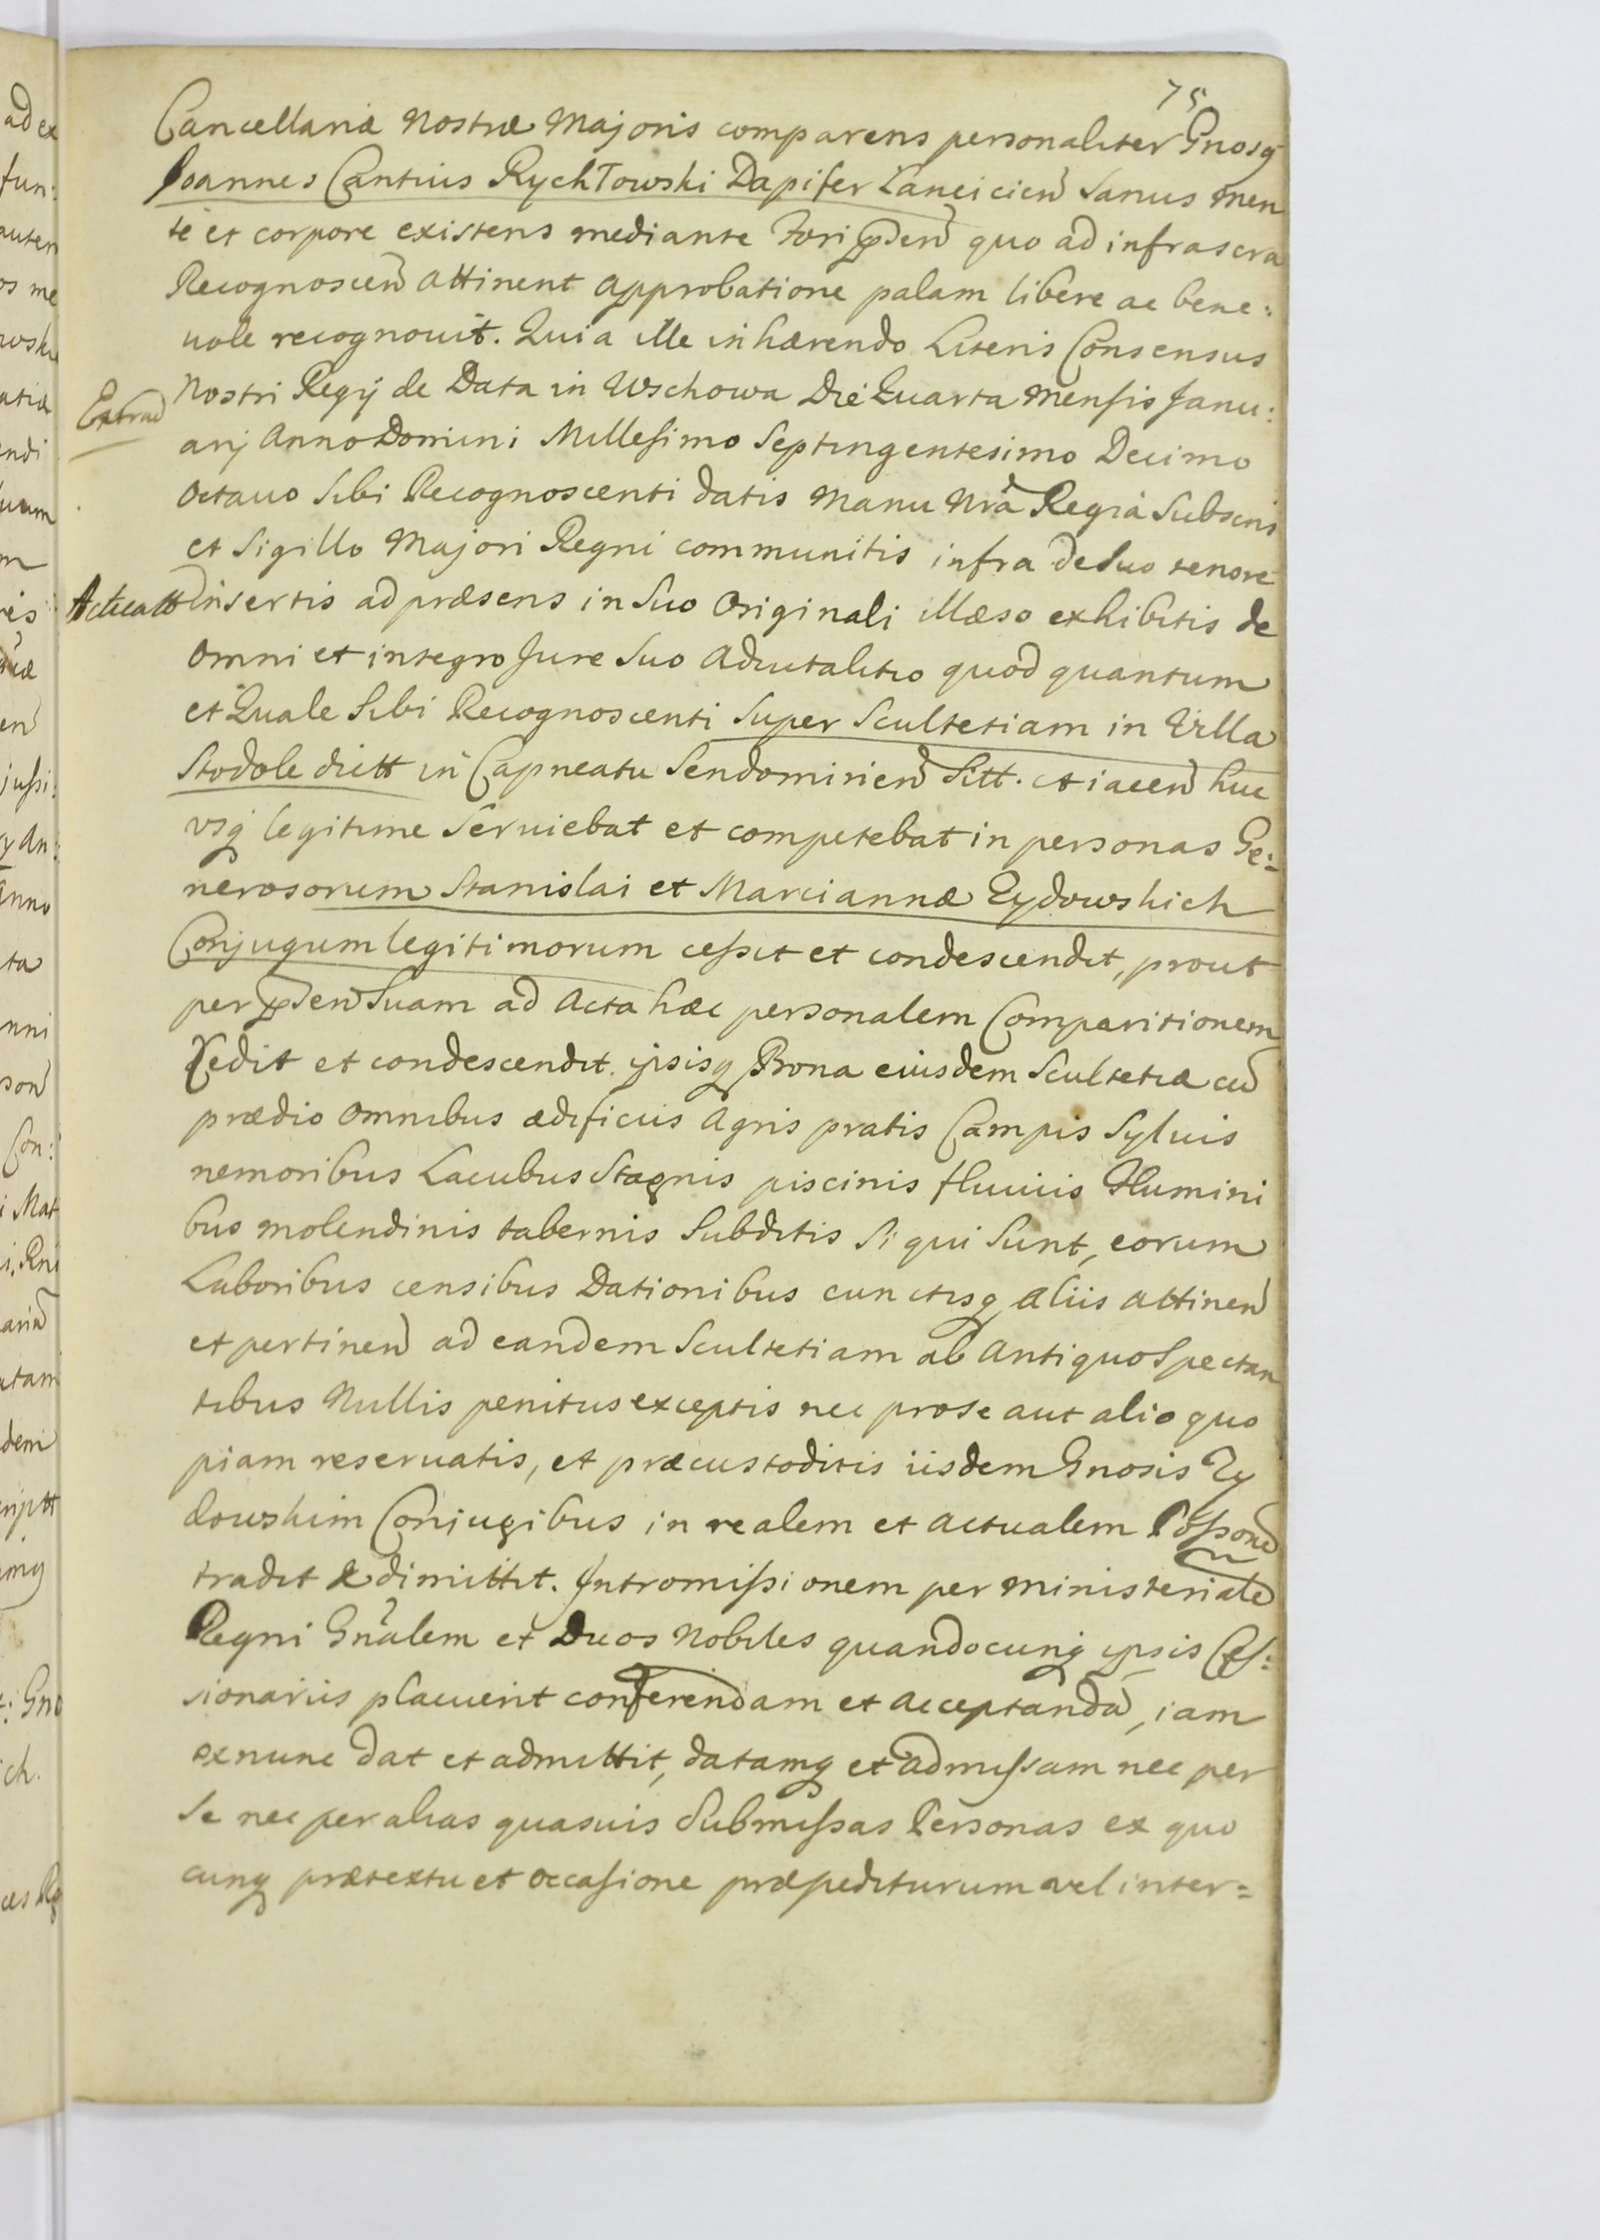 75
Cancellariæ Nostræ Majoris comparens personaliter Gnosq
Joannes Cantius Rychłowski Dapifer Lancicien Sanus men
te et corpore existens mediante Fori pden quo ad infrascra
Recognoscen attinent approbatione palam libere ac bene:
uole recognouit. Quia ille inhærendo Literis Consensus
Nostri Regij de Data in Wschowa Die Quarta Mensis Janu:
Extrad
arij Anno Domini Millesimo Septingentesimo Decimo
Octauo Sibi Recognoscenti datis Manu Nra Regia Subscris
et Sigillo Majori Regni communitis infra de suo tenore
Acticatt
insertis ad præsens in Suo Originali illæso exhibitis de
omni et integro Jure Suo Aduitalitio quod quantum
et Quale Sibi Recognoscenti Super Scultetiam in Villa
Stodole dictt in Capneatu Sendomirien Sitt. et iacen huc
usq legitime Seruiebat et competebat in personas Ge:
nerosorum Stanislai et Mariannæ Zydowskich
Conjugum legitimorum cessit et condescendit, prout
per pden Suam ad Acta hæc personalem Comparitionem
Cedit et condescendit. ipsisq Bona eiusdem Scultetiæ cu
prædio omnibus ædificiis Agris pratis Campis Syluis
nemoribus Lacubus Stagnis piscinis fluuiis Flumini
bus molendinis tabernis Subditis Si qui Sunt, eorum
Laboribus censibus Dationibus cunctisq aliis attinen
et pertinen ad eandem Scultetiam ab Antiquo Spectan
tibus Nullis penitus exceptis nec pro se aut alio quo
piam reseruatis, et præcustoditis iisdem Gnosis Zy
dowskim Conjugibus in realem et actualem Possone
tradit & dimittit. Intromissionem per Ministeriale
Regni Gnalem et Duos Nobiles quandocunq ipsis Ces:
sionariis placuerit conferendam et acceptanda, iam
ex nunc dat et admittit, datamq et admissam nec per
Se nec per alias quasuis Submissas Personas ex quo
cunq prætextu et occasione præpediturum vel inter=